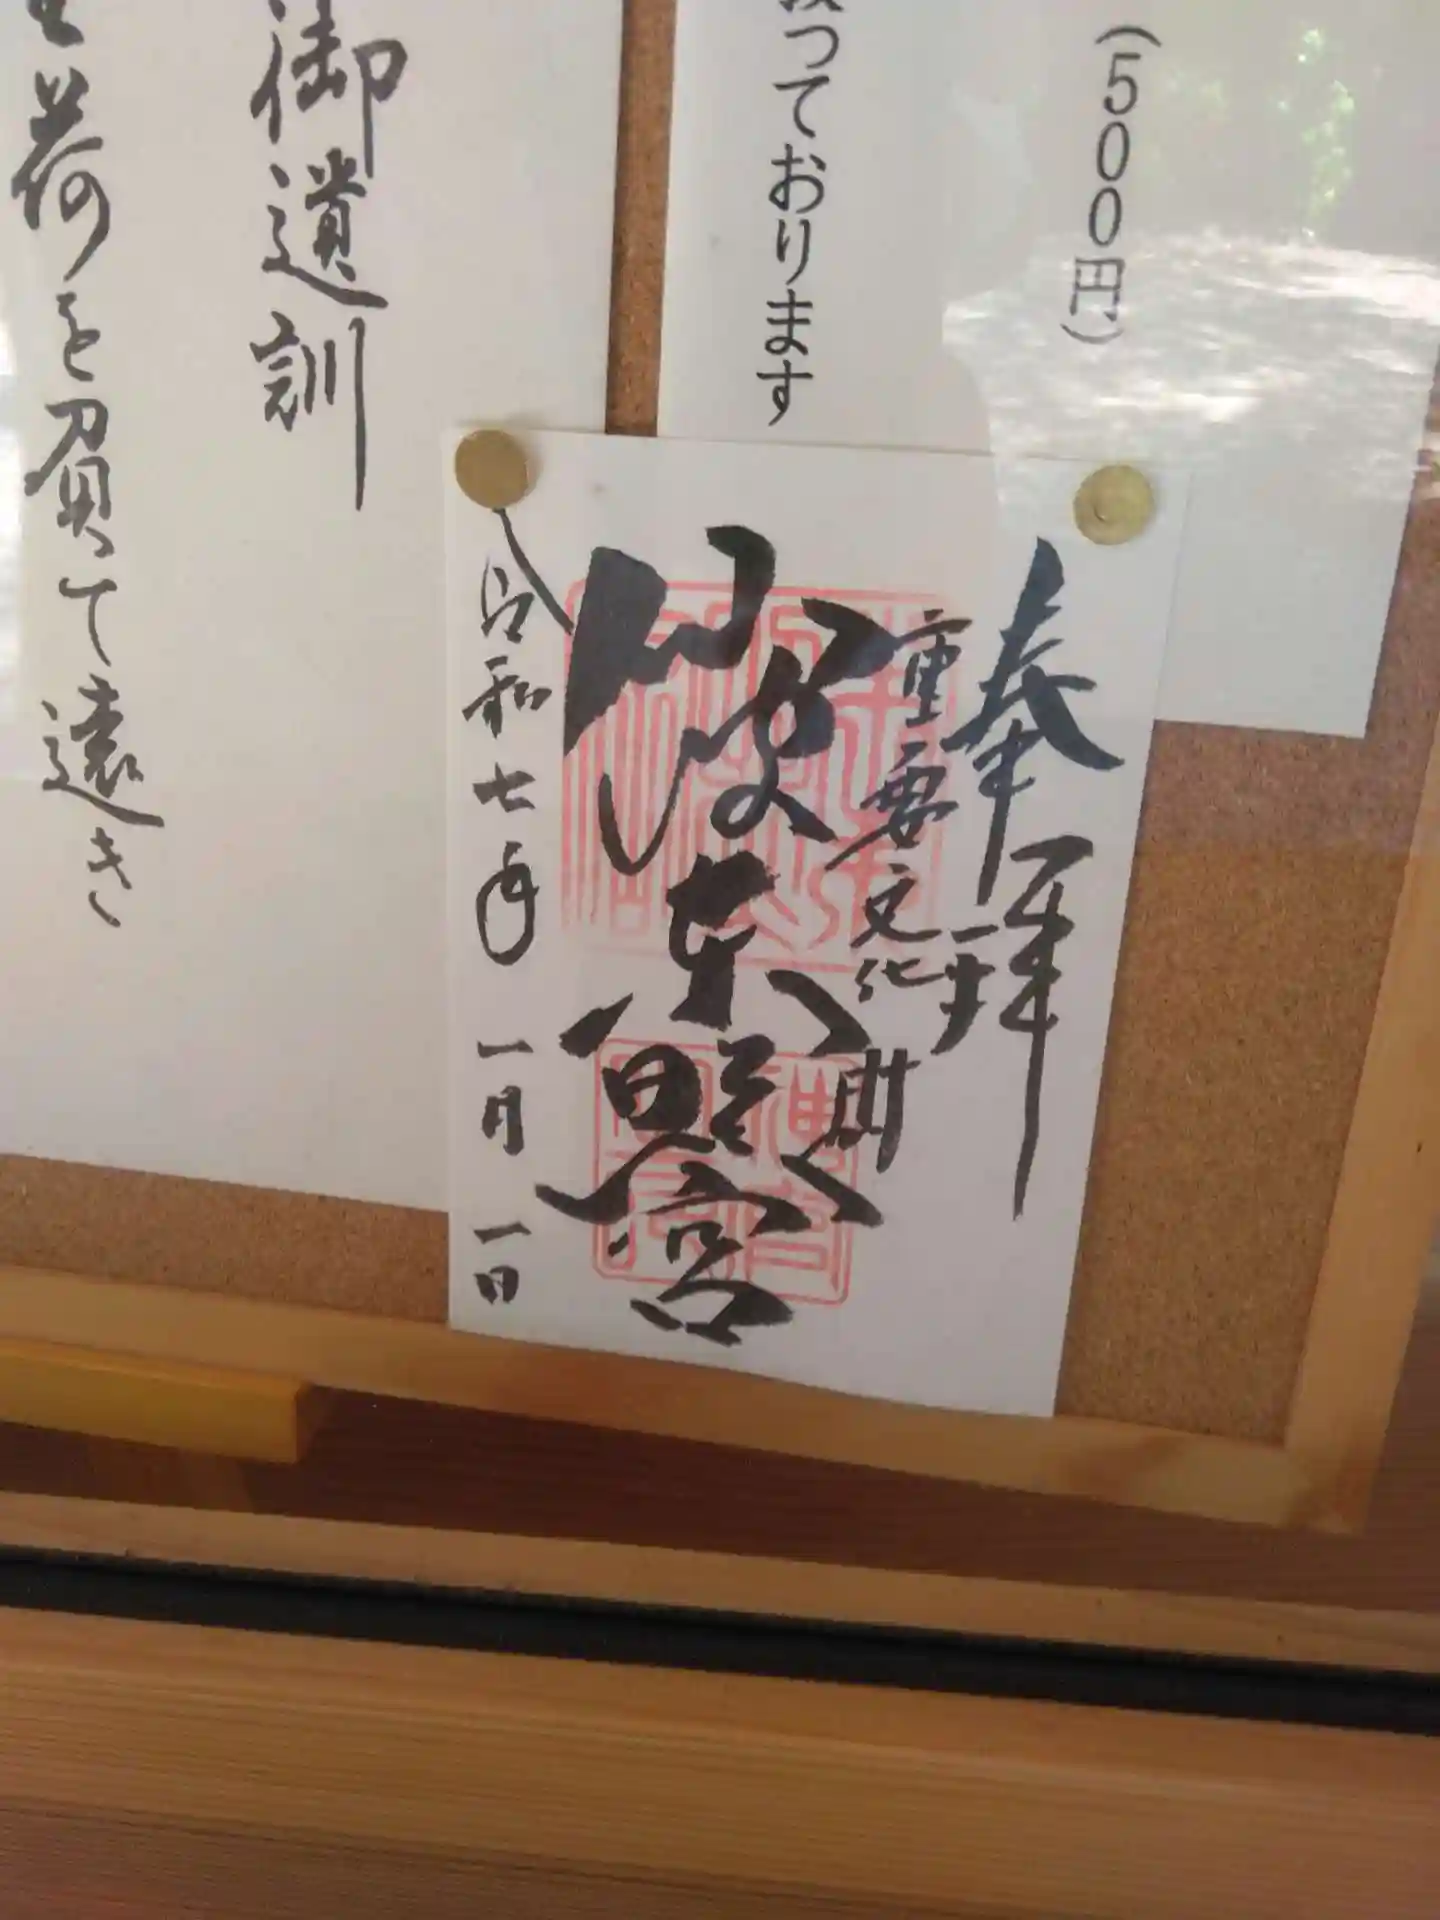 （500円）
っております
奉拝
重要文化財
仙波東照宮
令和七年 一月 一日
御遺訓
荷を負て遠き